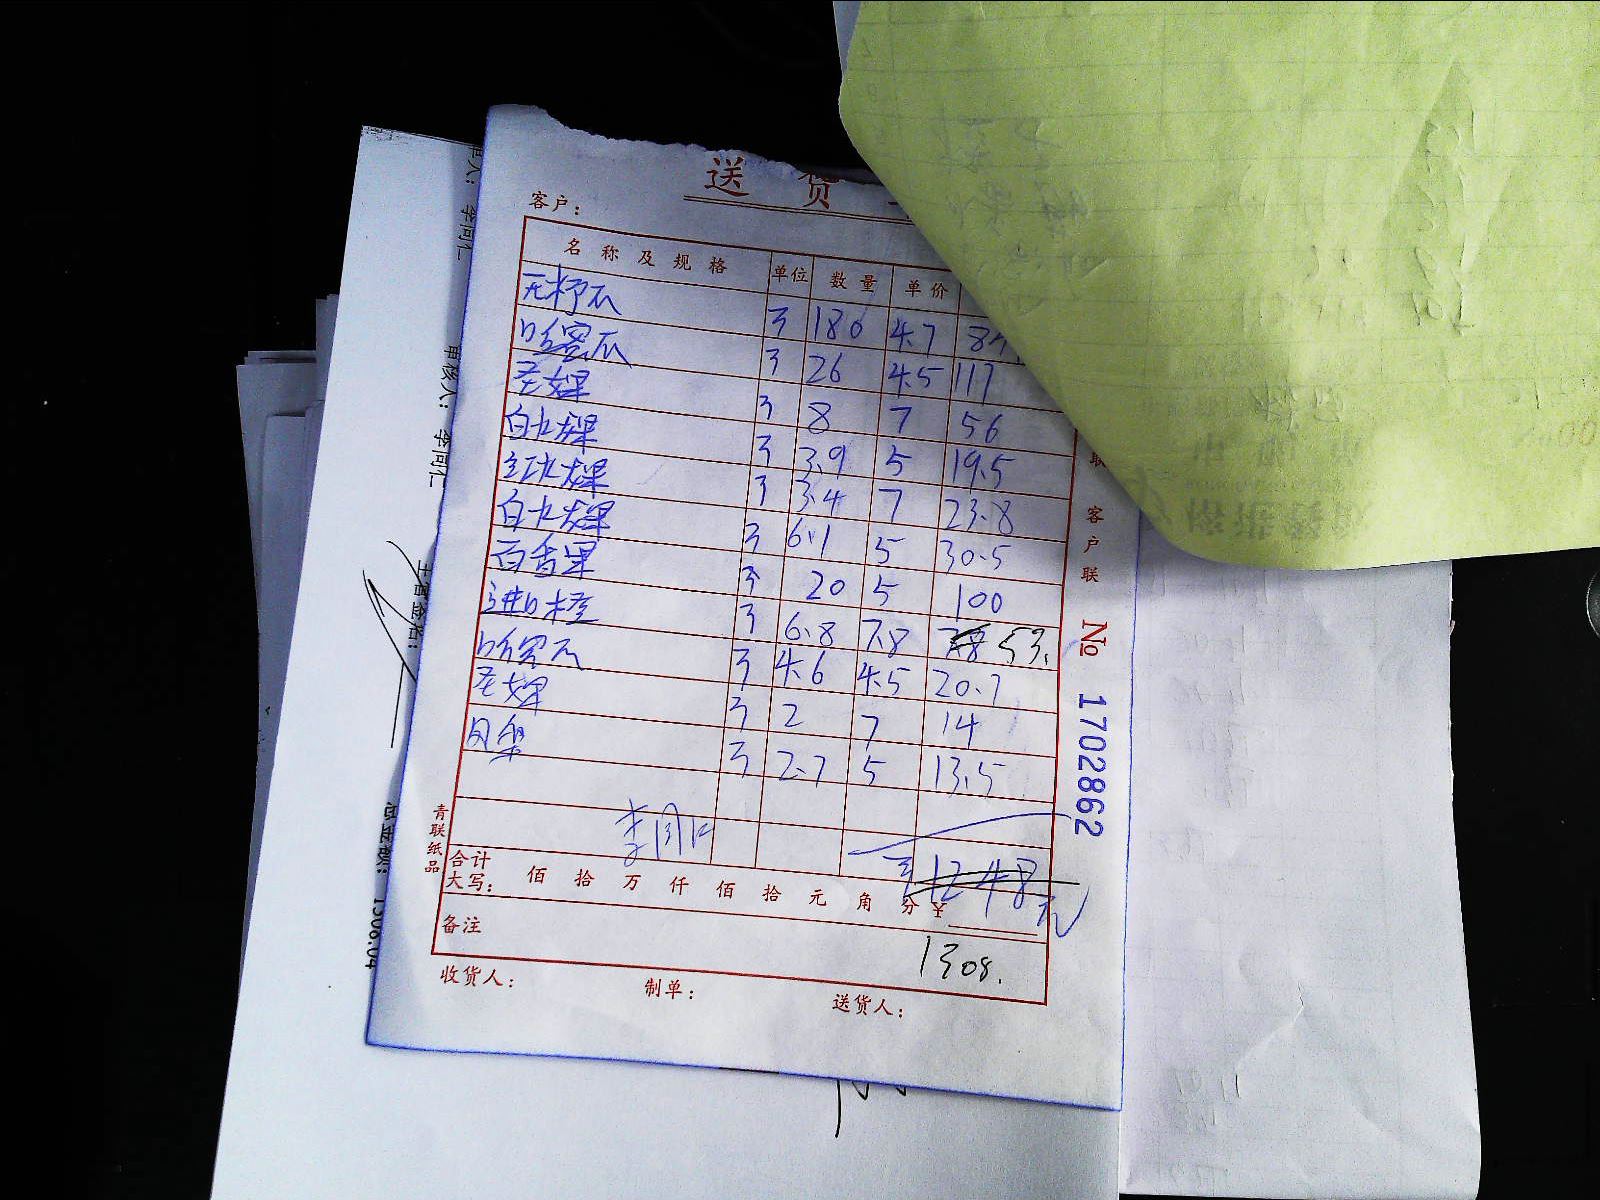 送货
客户：
名称及规格 单位 数量 单价
无籽瓜 斤 180 4.7 84
哈密瓜 斤 26 4.5 117
圣女果 斤 8 7 56
白火龙果 斤 3.9 5 19.5
红火龙果 斤 3.4 7 23.8
白火龙果 斤 6.1 5 30.5
百香果 斤 20 5 100
进口橙 斤 6.8 7.8 53.
哈密瓜 斤 4.6 4.5 20.7
圣女果 斤 2 7 14
斤 2.7 5 13.5
李同仁
合计
大写： 佰 拾 万 仟 佰 拾 元 角 分 ¥ 1248元
备注 1308.
收货人： 制单： 送货人：
青联纸品
联 客户联
No 1702862
李同仁
审核人： 李同仁
主管签名：
总金额： 1308.04